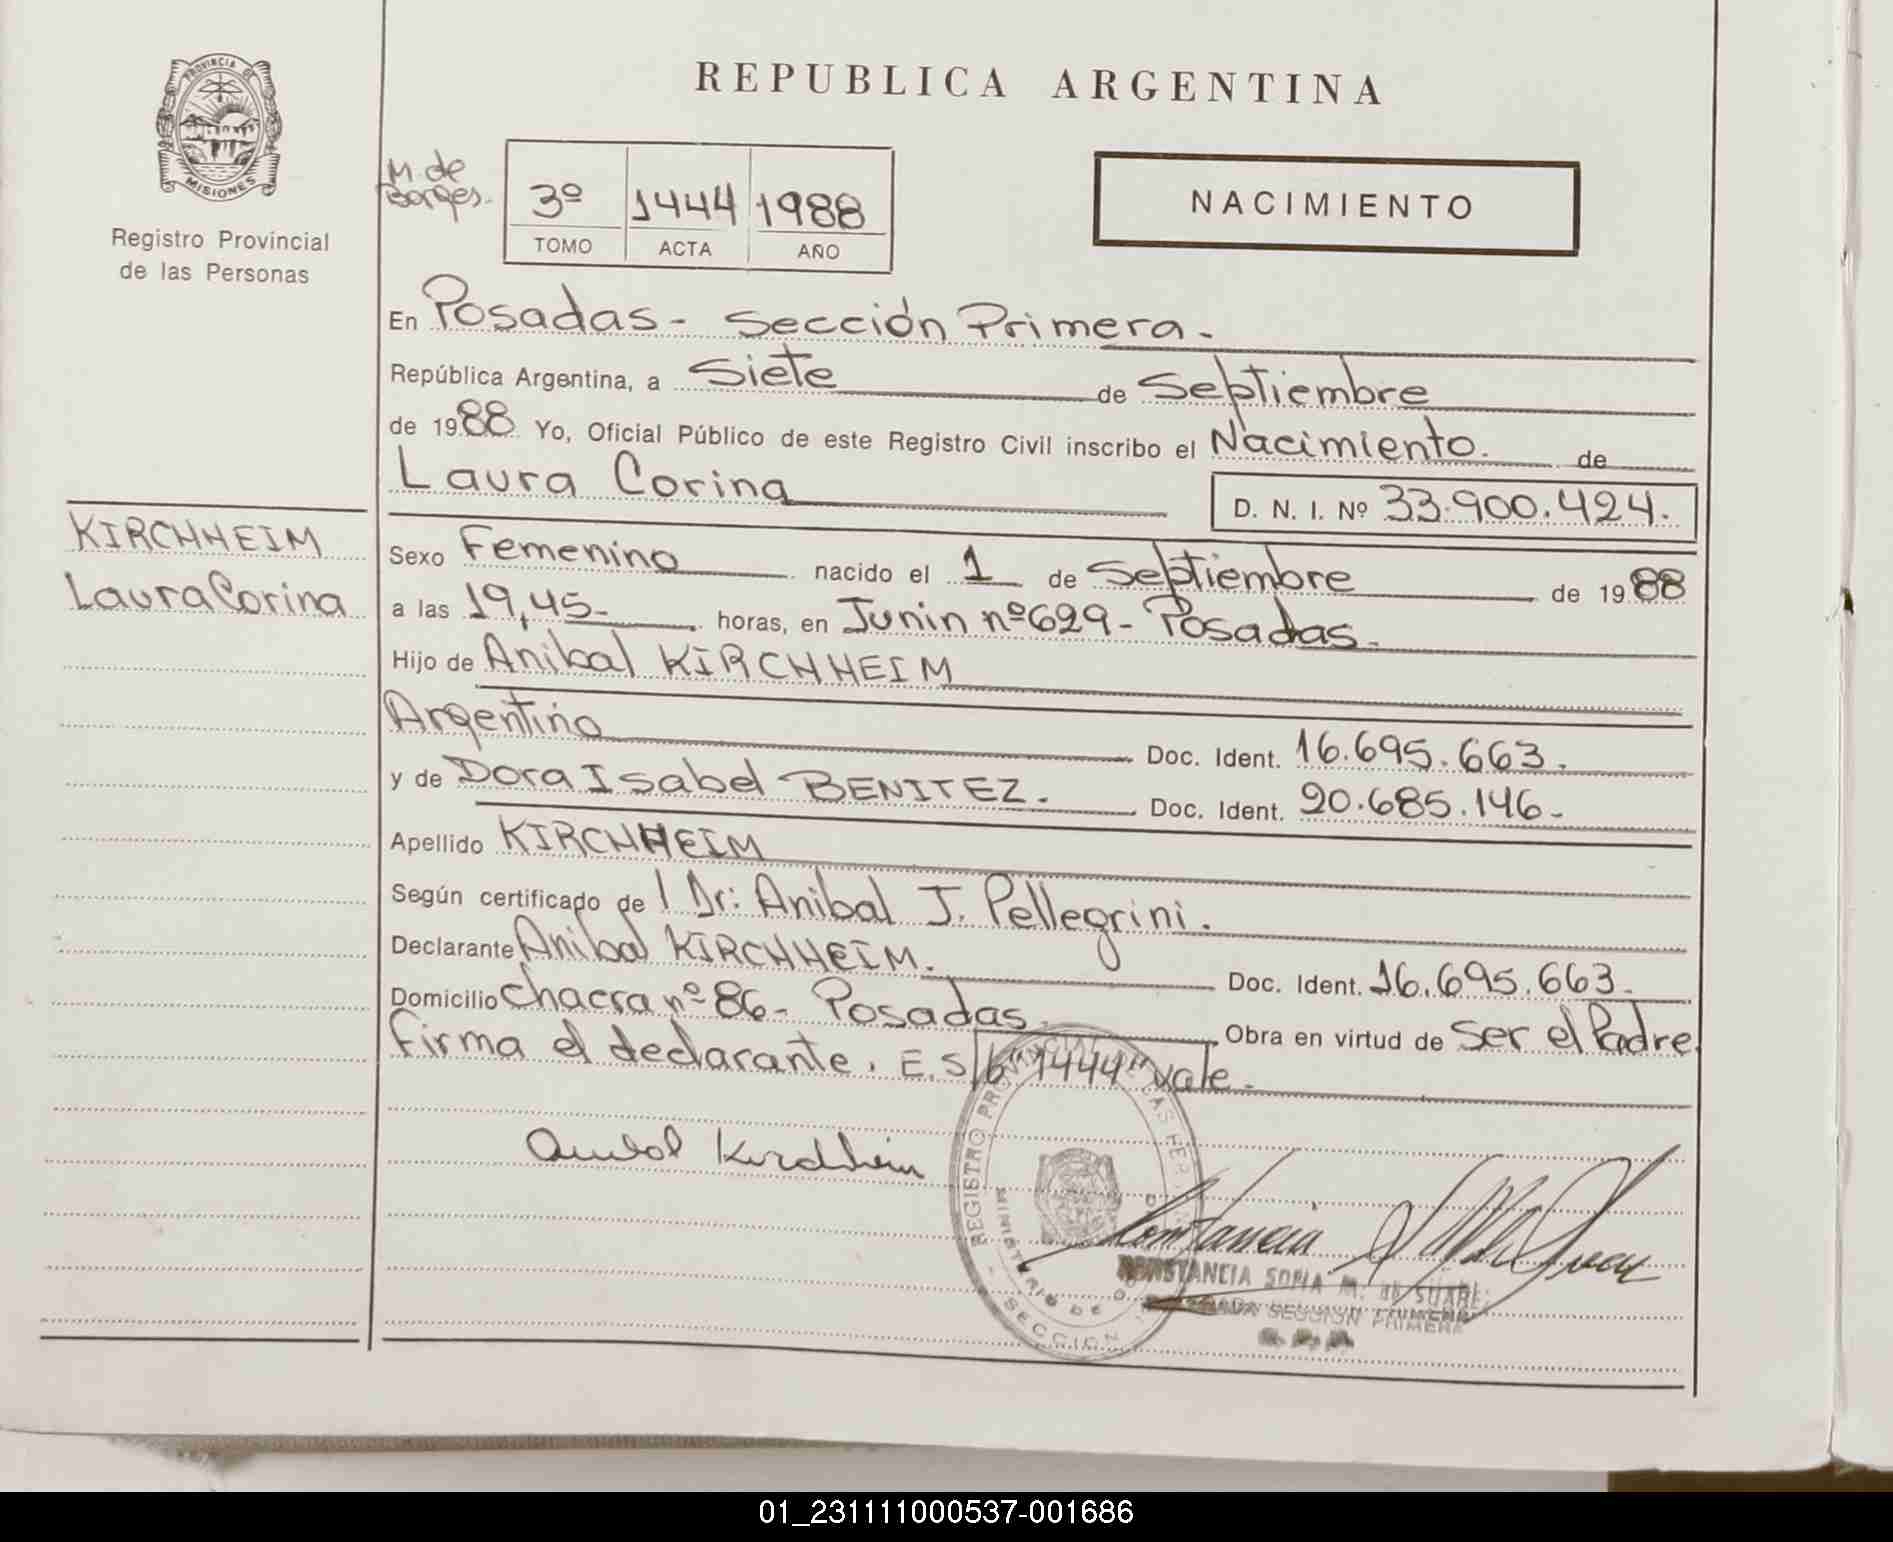 PROVINCIA DE
MISIONES
Registro Provincial
de las Personas
REPUBLICA ARGENTINA
M. de
Borges.
3º 1444 1988
TOMO ACTA AÑO
NACIMIENTO
En Posadas - Sección Primera.
República Argentina, a Siete de Septiembre
de 1988 Yo, Oficial Público de este Registro Civil inscribo el Nacimiento. de
Laura Corina D. N. I. Nº 33.900.424.
KIRCHHEIM
Laura Corina
Sexo Femenino nacido el 1 de Septiembre de 1988
a las 19,45 horas, en Junin nº 629 - Posadas.
Hijo de Anibal KIRCHHEIM
Argentino Doc. Ident. 16.695.663.
y de Dora Isabel BENITEZ. Doc. Ident. 20.685.146-
Apellido KIRCHHEIM
Según certificado de l Dr: Anibal J. Pellegrini.
Declarante Anibal KIRCHHEIM. Doc. Ident. 16.695.663.
Domicilio Chacra nº 86- Posadas. Obra en virtud de Ser el Padre.
Firma el declarante. E.S/b "1444" vale.
Anibal Kirchheim
REGISTRO PROVINCIAL DE LAS PER
MINISTERIO DE
SECCION
Constancia
CONSTANCIA SOFIA M. de SUAREZ
SECCION PRIMERA
01_231111000537-001686